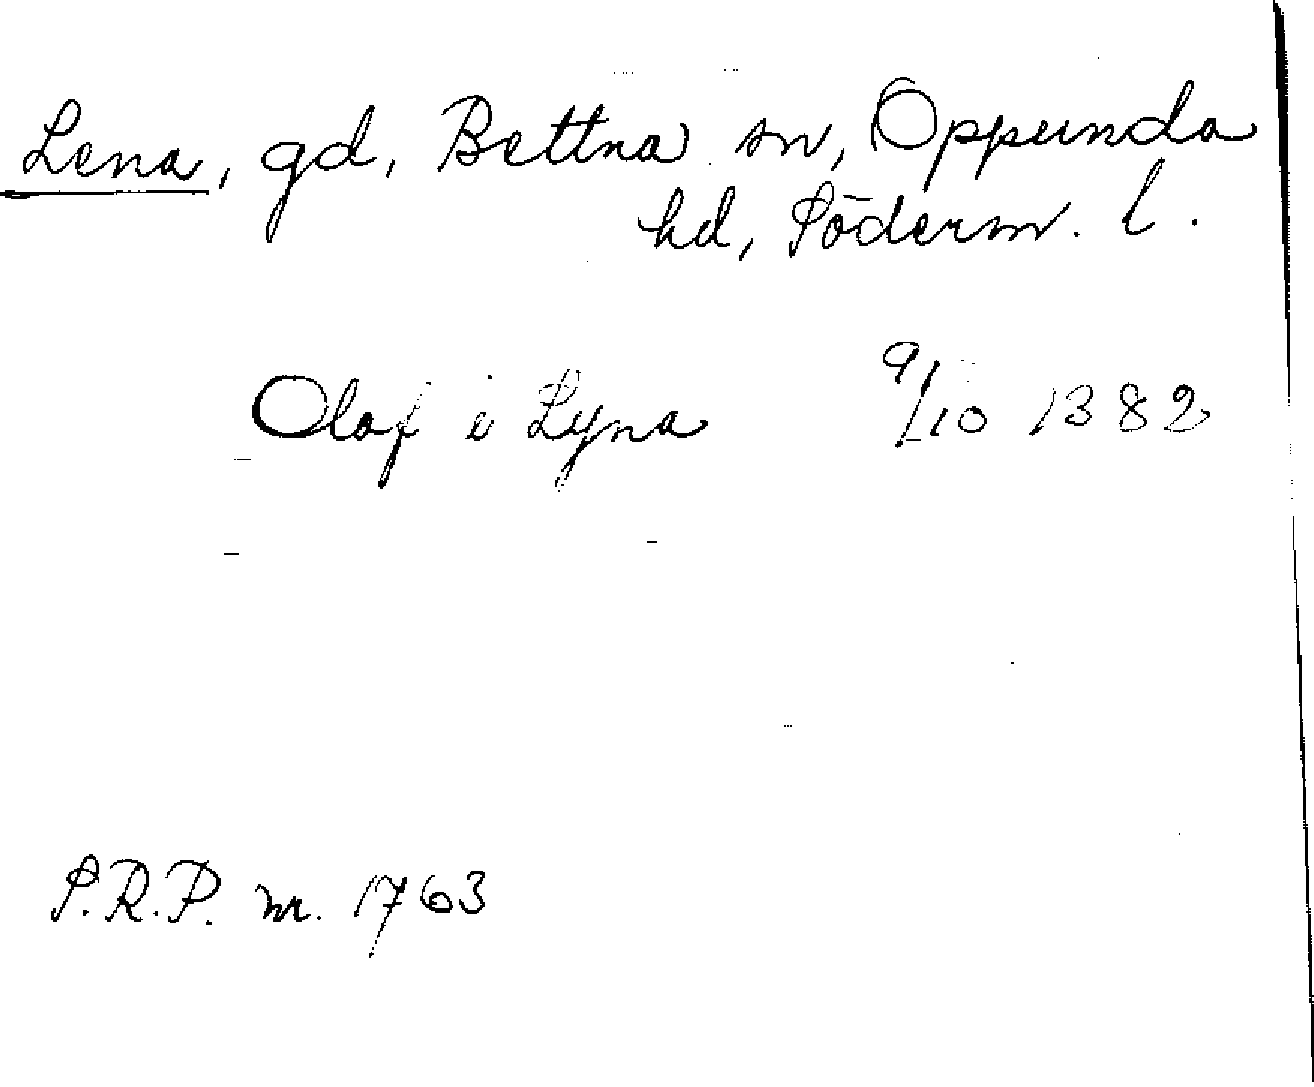 Lena, gd, Bettna sn, Oppunda
hd, Söderm. l.
Olaf i Lyna 9/10 1382
S.R.P. nr. 1763